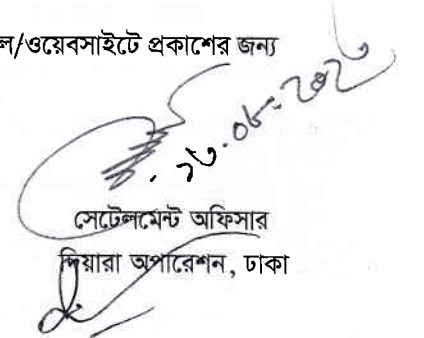 ল/ওয়েবসাইটে প্রকাশের জন্য
সেটেলমেন্ট অফিসার
দিয়ারা অপারেশন, ঢাকা